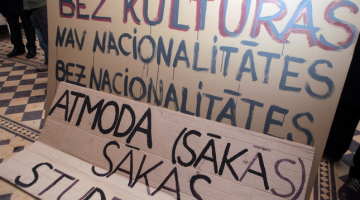 BEZ KULTŪRAS
NAV NACIONALITĀTES
BEZ NACIONALITĀTES
ATMODA (SĀKAS)
SĀKAS